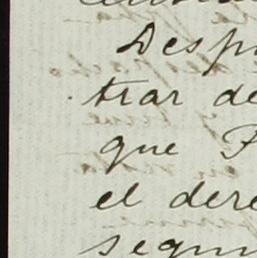 Desp
trar de
que F
el dere
segun